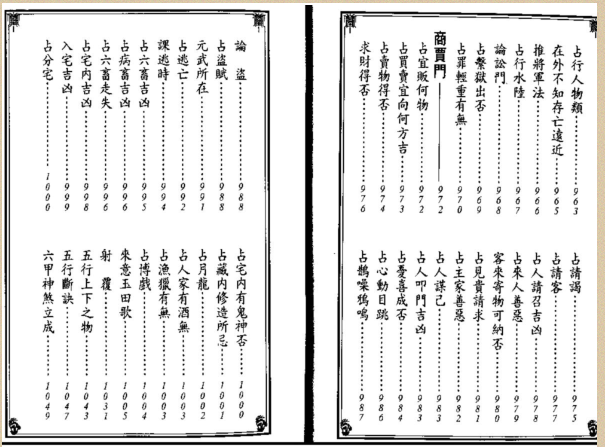 占行人物類……963
在外不知存亡遠近……965
推將軍法……966
占行水陸……967
論訟門……968
占繫獄出否……969
占罪輕重有無……970
商賈門——972
占宜販何物……972
占買賣宜向何方吉……973
占賣物得否……974
求財得否……976
占請謁……975
占請客……977
占人請召吉凶……978
占來人善惡……979
客來寄物可納否……980
占見貴請求……981
占主家善惡……982
占人謀己……983
占人叩門吉凶……983
占憂喜成否……984
占心動目跳……986
占鵲噪鴉鳴……987
論盜……988
占盜賊……988
元武所在……991
占逃亡……992
課逃時……994
占六畜吉凶……995
占病畜吉凶……996
占六畜走失……996
占宅內吉凶……998
入宅吉凶……999
占分宅……1000
占宅內有鬼神否……1000
占藏內修造所忌……1001
占月龍……1002
占人家有酒無……1003
占漁獵有無……1003
占博戲……1004
來意玉田歌……1005
射覆……1031
五行上下之物……1043
五行斷訣……1047
六甲神煞立成……1049